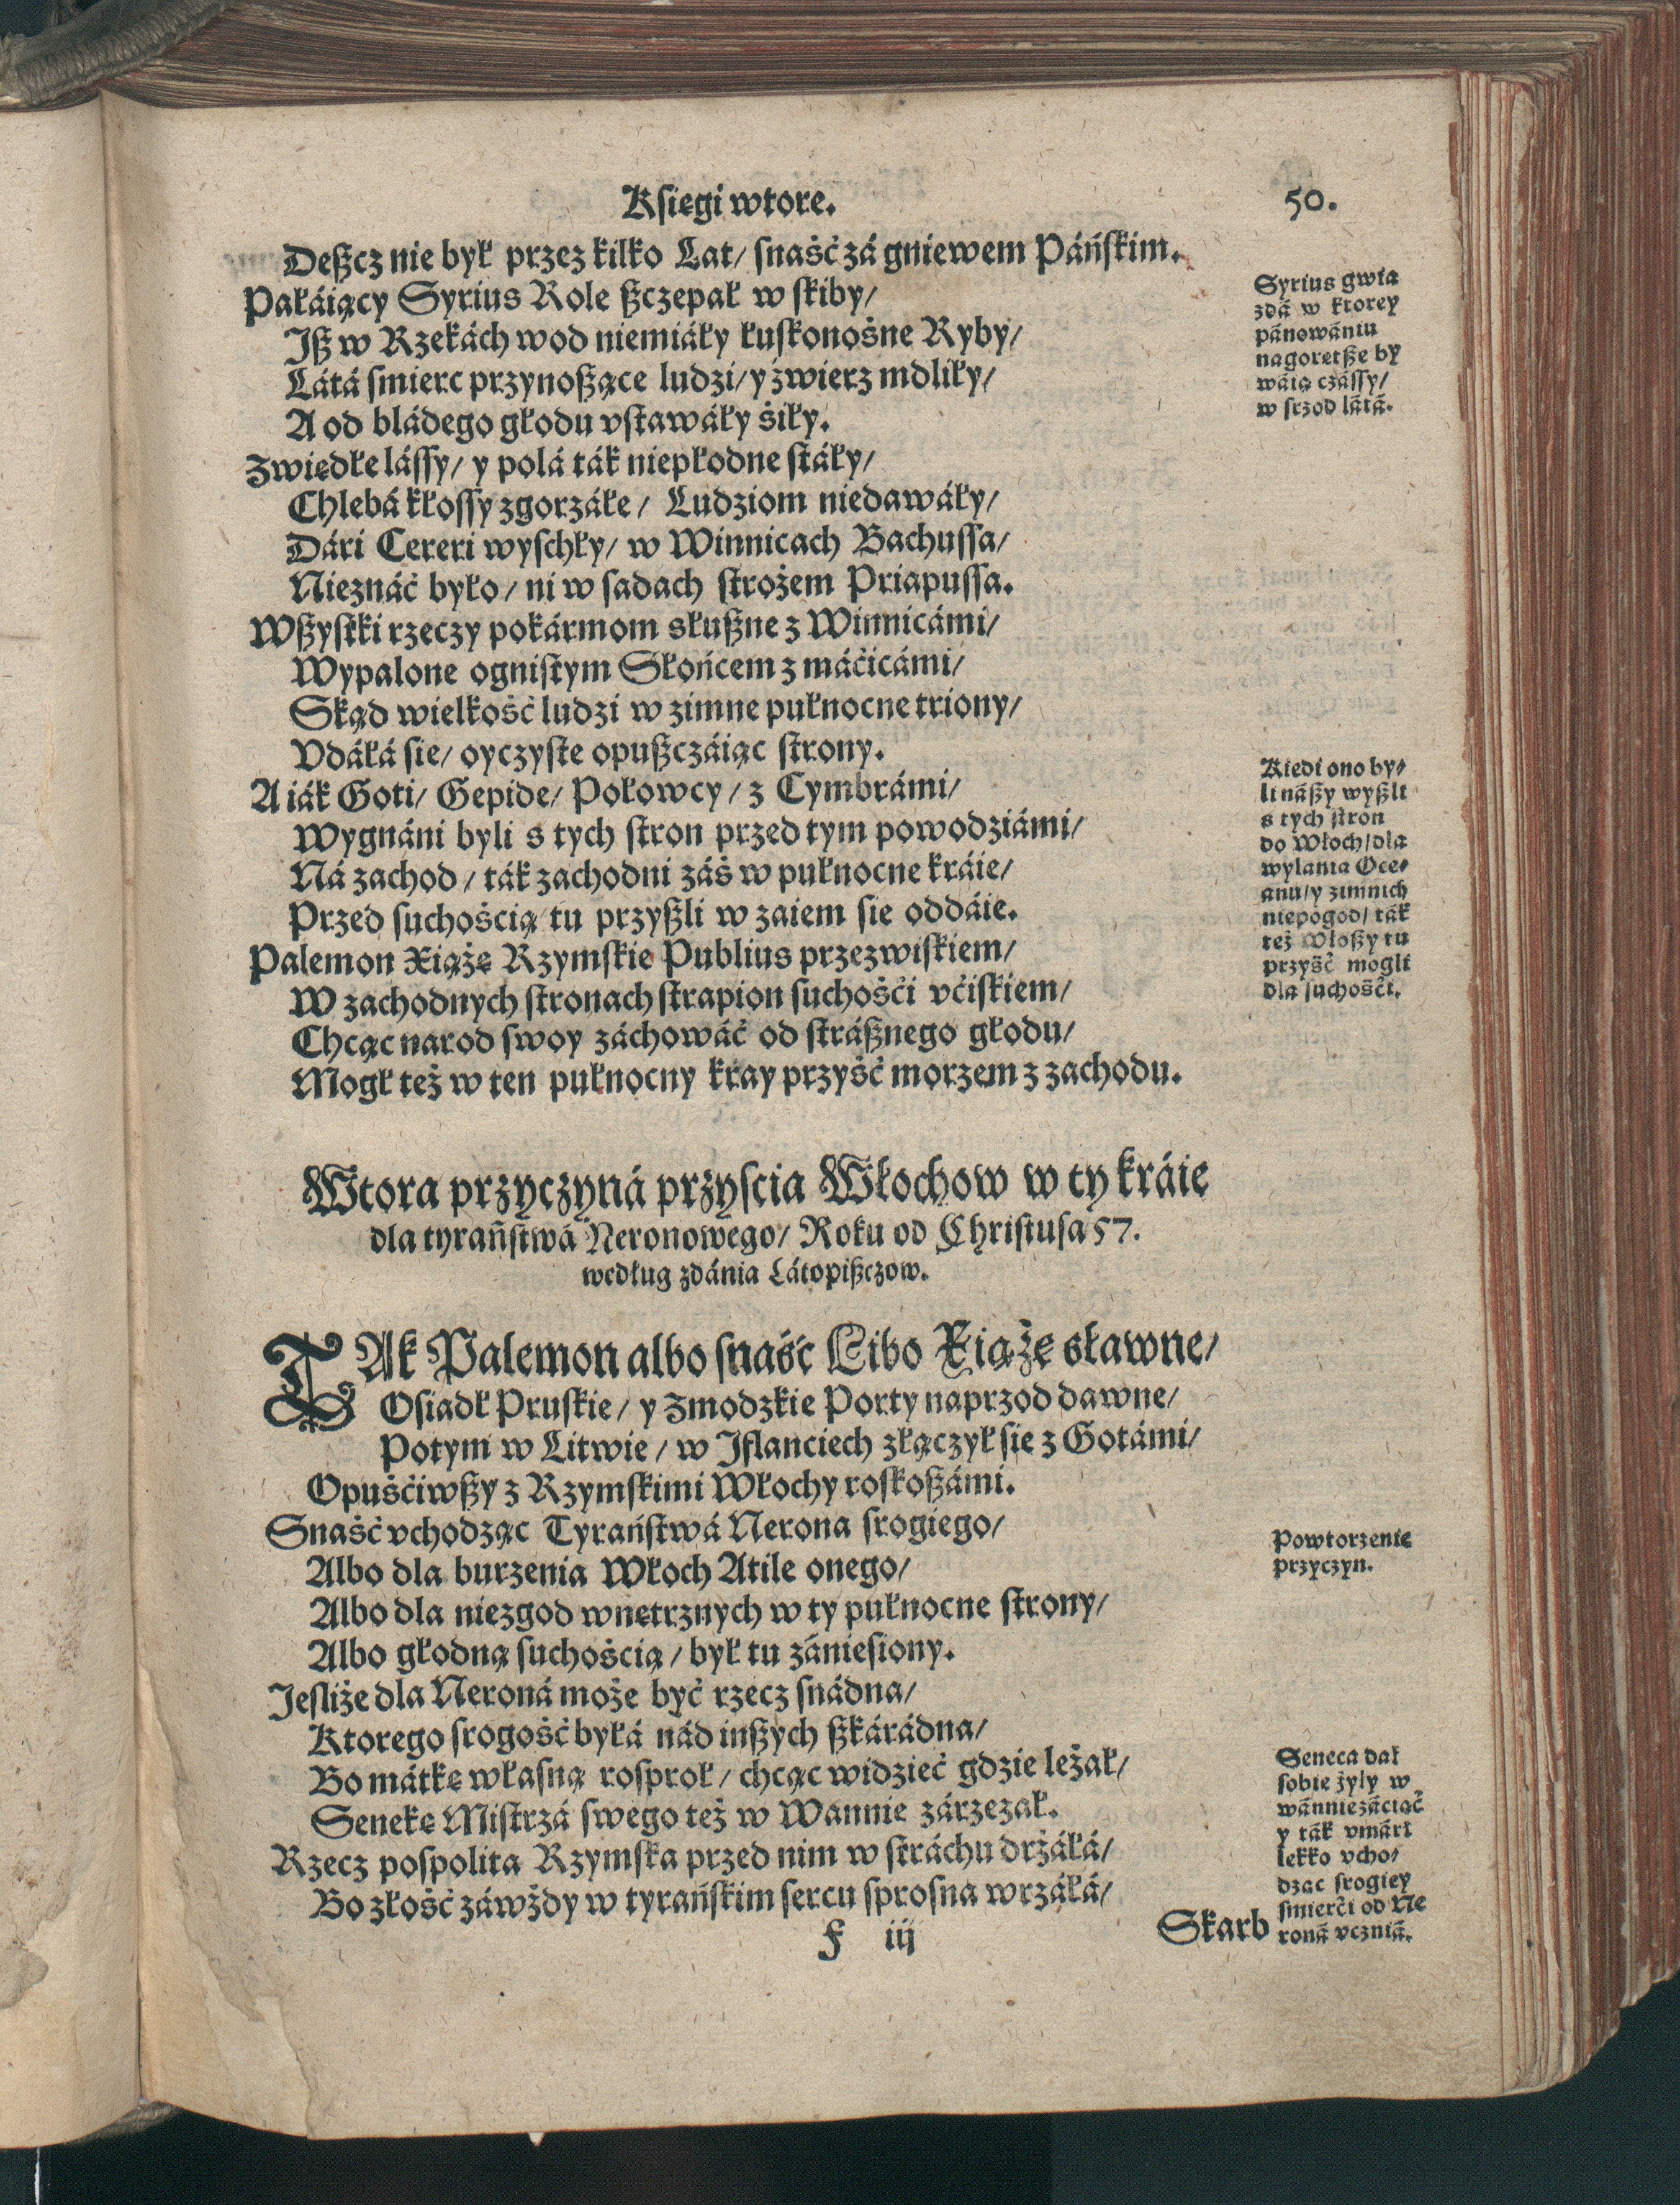 Ksiegi wtore.
50.
Deßcz nie był przez kilko Lat/ snaść zá gniewem Páńskim.
Pałáiący Syrius Role ßczepał w skiby/
Iß w Rzekách wod niemiáły łuskonośne Ryby/
Látá smierc przynoßące ludzi/ y źwierz mdliły/
A od bládego głodu vstawáły śiły.
Zwiędłe lássy/ y polá ták niepłodne stáły/
Chlebá kłossy zgorzáłe/ Ludziom niedawáły/
Dári Cereri wyschły/ w Winnicach Bachussa/
Nieznáć było/ ni w sadach strożem Priapussa.
Wßystki rzeczy pokármom słußne z Winnicámi/
Wypalone ognistym Słońcem z máćicámi/
Skąd wielkość ludzi w zimne pułnocne triony/
Vdáłá sie/ oyczyste opußczáiąc strony.
A iák Goti/ Gepide/ Połowcy/ z Cymbrámi/
Wygnáni byli s tych stron przed tym powodziámi/
Ná zachod/ ták zachodni záś w pułnocne kráie/
Przed suchośćią tu przyßli w zaiem sie oddáie.
Palemon Xiążę Rzymskie Publius przezwiskiem/
W zachodnych stronach strapion suchośći vćiskiem/
Chcąc narod swoy záchowáć od stráßnego głodu/
Mogł też w ten pułnocny kray przyść morzem z zachodu.
Syrius gwia
zdá w ktorey
pánowániu
nagoretße by
wáią czássy/
w srzod látá.
Kiedi ono by-
li náßy wyßli
s tych stron
do Włoch/dla
wylania Oce-
anu/y zimnich
niepogod/ ták
też Włoßy tu
przyść mogli
dla suchośći.
Wtora przyczyná przyscia Włochow w ty kráie
dla tyraństwá Neronowego/ Roku od Christusa 57.
według zdánia Látopißczow.
TAk Palemon albo snaść Libo Xiążę sławne/
Osiadł Pruskie/ y Zmodzkie Porty naprzod dawne/
Potym w Litwie/ w Iflanciech złączył sie z Gotámi/
Opuśćiwßy z Rzymskimi Włochy roskoßámi.
Snaść vchodząc Tyraństwá Nerona srogiego/
Albo dla burzenia Włoch Atile onego/
Albo dla niezgod wnętrznych w ty pułnocne strony/
Albo głodną suchośćią/ był tu zániesiony.
Iesliże dla Neroná może być rzecz snádna/
Ktorego srogość byłá nád inßych ßkárádna/
Bo mátkę własną rosproł/ chcąc widzieć gdzie leżał/
Senekę Mistrzá swego też w Wannie zárzezał.
Rzecz pospolita Rzymska przed nim w stráchu drżáłá/
Bo złość záwżdy w tyrańskim sercu sprosna wrzáłá/
Powtorzenie
przyczyn.
Seneca dał
sobie żyly w
wánnie záciąć
y ták vmárł
lekko vcho/
dząc srogiey
śmierći od Ne
roná vczniá.
F iij
Skarb